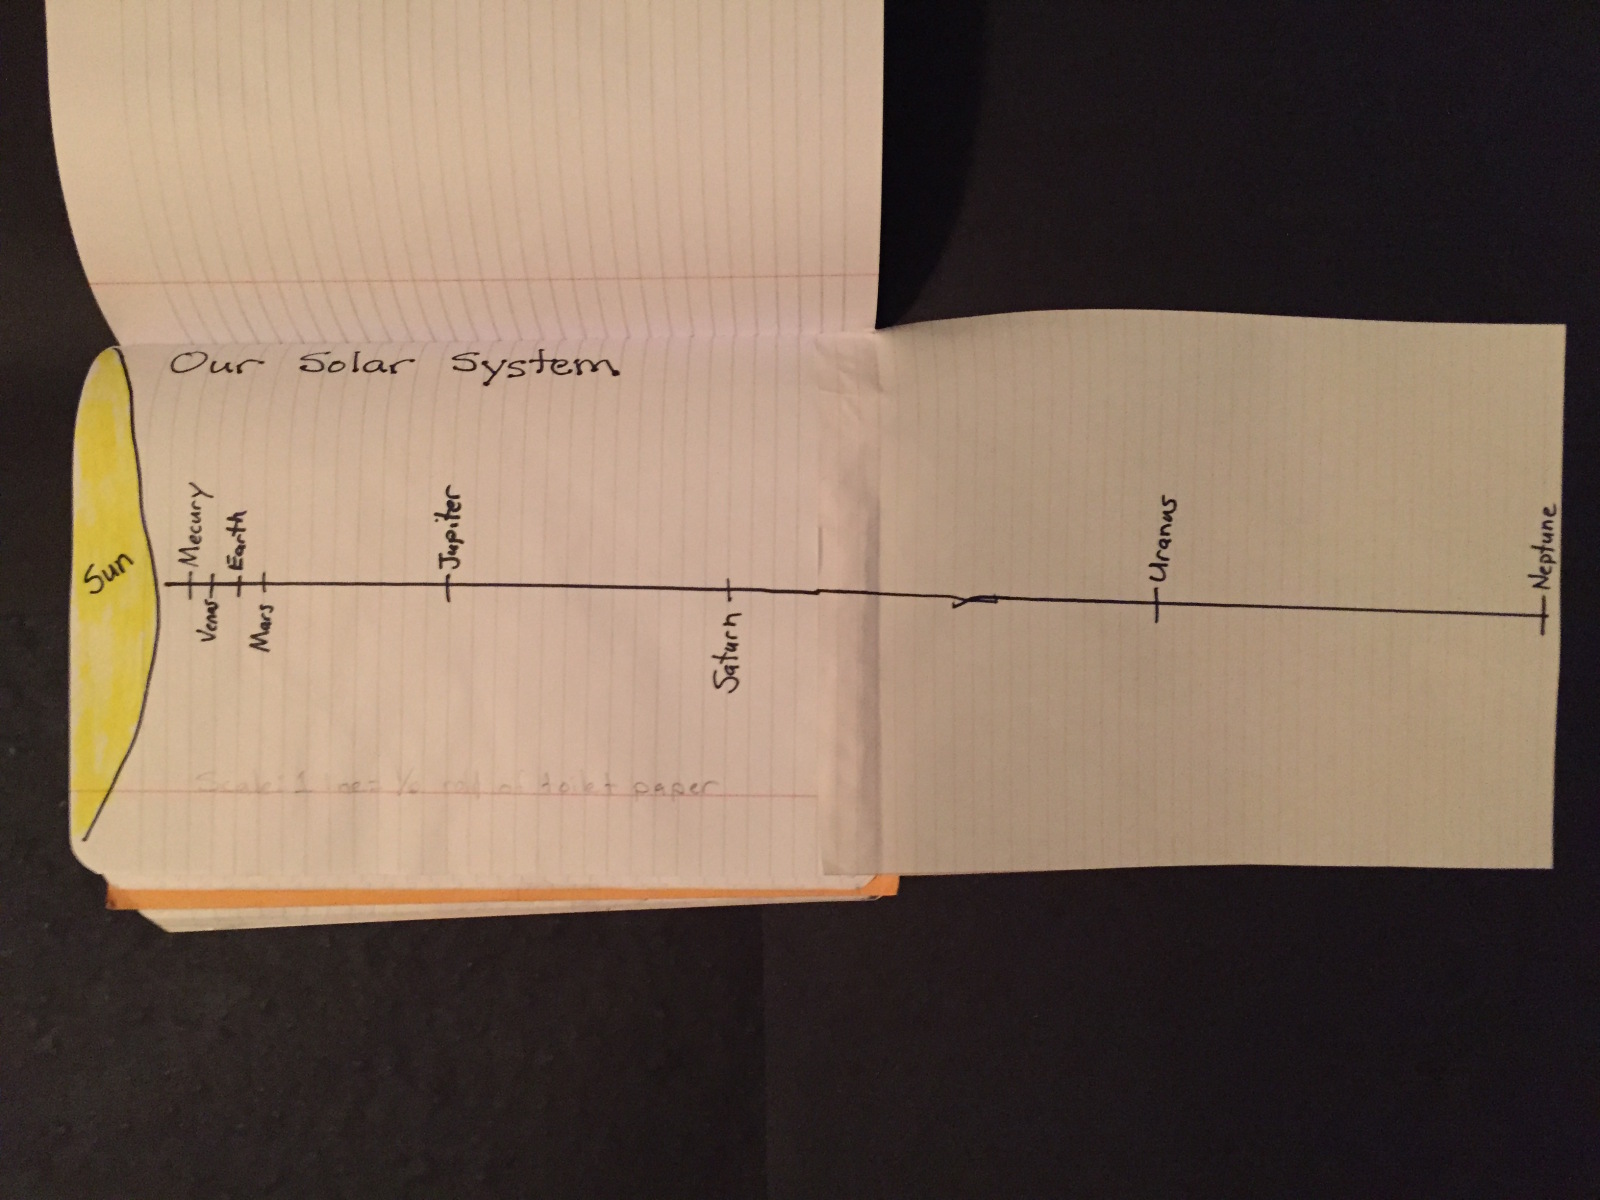 Our Solar System
Sun
Mecury
Venus
Earth
Mars
Jupiter
Saturn
Uranus
Neptune
Scale: 1 of toilet paper